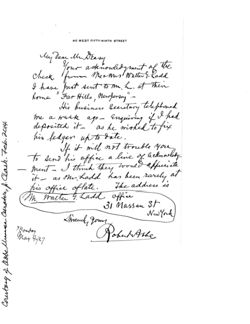 40 WEST FIFTY-NINTH STREET
My dear Mr. Deasy
Your acknowledgment of the
check from Mr & Mrs Walter G. Ladd
I have just sent to Mr. L. at their
home "Far Hills, New Jersey" -
His business Secretary telephoned
me a week ago - enquiring if I had
deposited it - as he wished to fix
his ledger up to date.
If it will not trouble you
to send his office a line of acknowledg-
ment - I think they would appreciate
it - as Mr. Ladd has been rarely at
his office of late. The address is
Mr Walter G. Ladd office
31 Nassau St
New York
Sincerely Yours
Robert Abbe
Monday
May 9/27
Courtesy of Abbe Museum